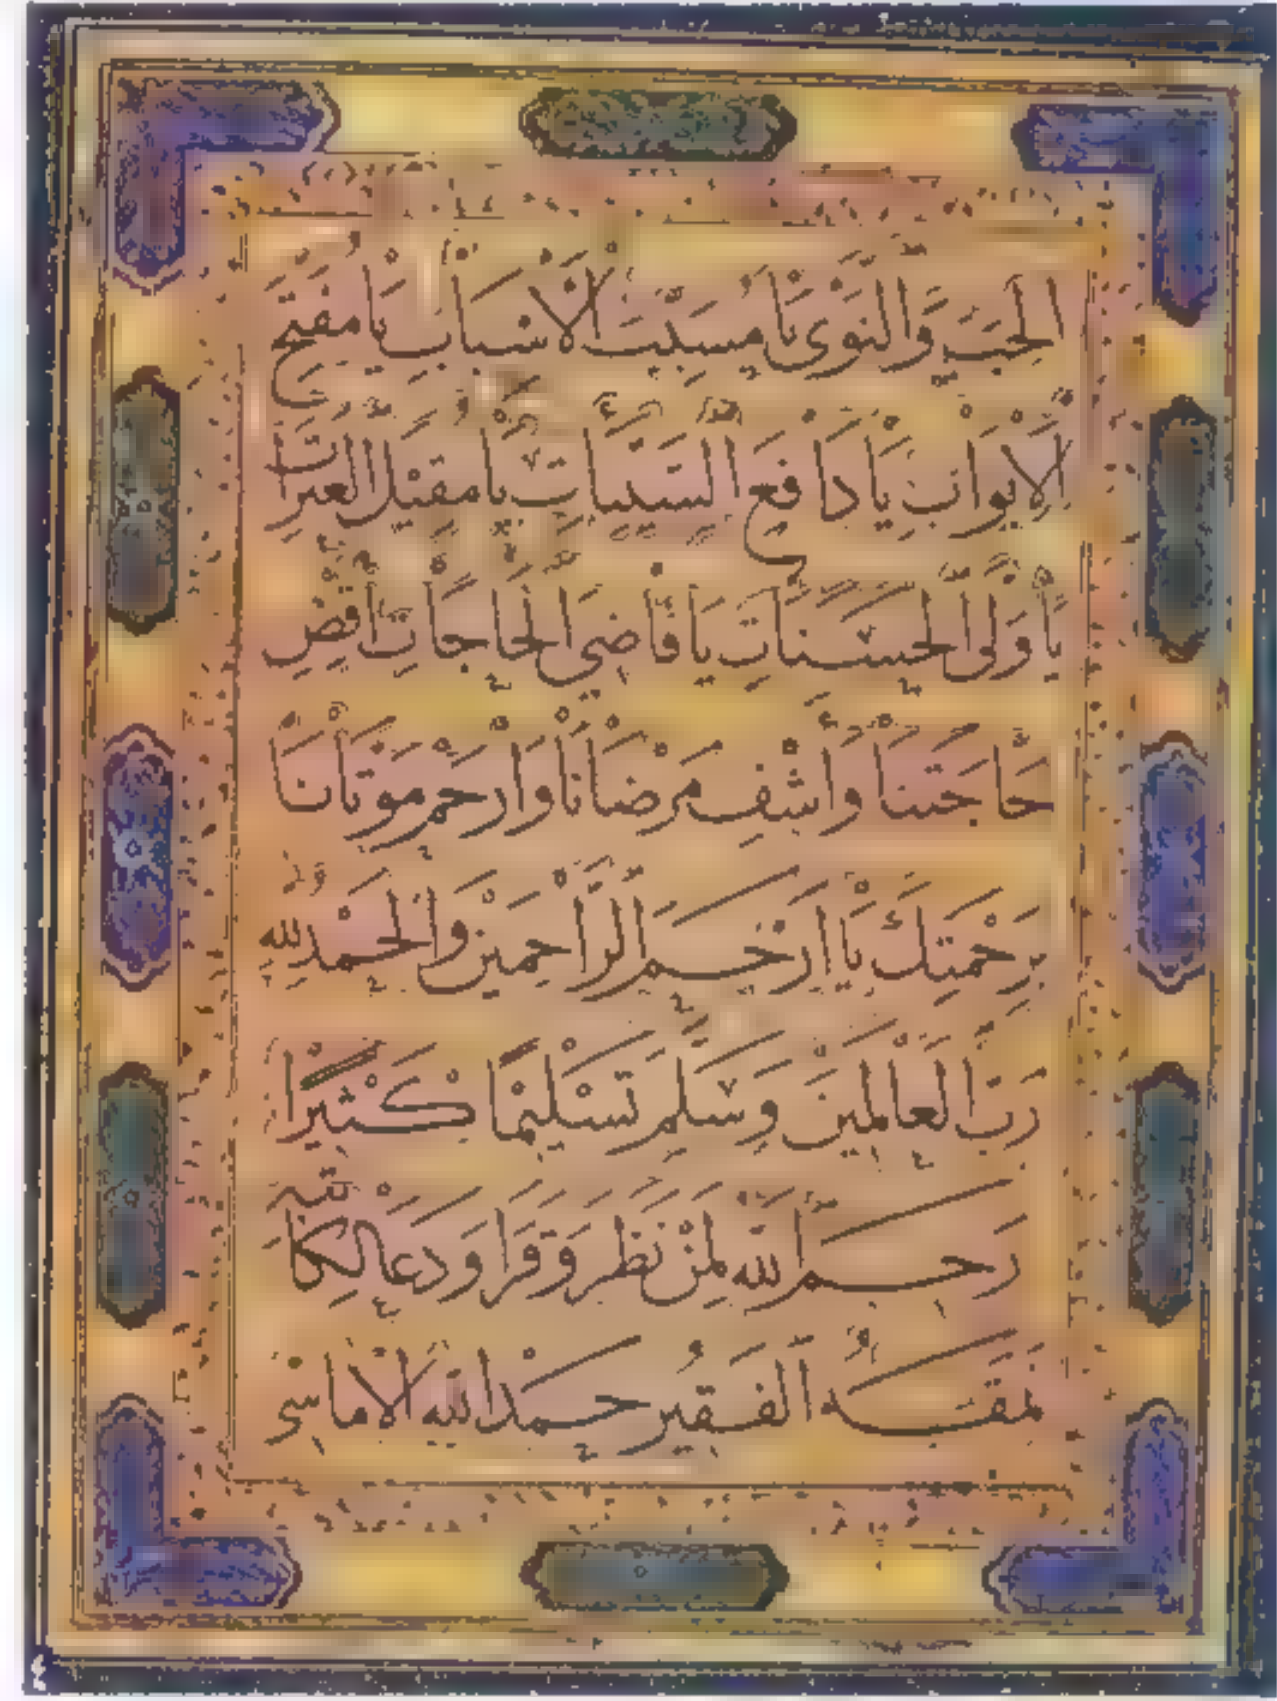 الْحَبِّ وَالنَّوَى يَا مُسَبِّبَ الْاَسْبَابِ يَا مُفَتِّحَ
الْاَبْوَابِ يَا دَافِعَ السَّيِّئَاتِ يَا مُقِيلَ الْعَثَرَاتِ
يَا وَلِىَّ الْحَسَنَاتِ يَا قَاضِىَ الْحَاجَاتِ اَقْضِ
حَاجَتَنَا وَأَشْفِ مَرْضَانَا وَارْحَمْ مَوْتَانَا
بِرَحْمَتِكَ يَا اَرْحَمَ الرَّاحِمِينَ وَالْحَمْدُ لِلّٰهِ
رَبِّ الْعَالَمِينَ وَسَلِّمْ تَسْلِيمًا كَثِيرًا
رَحِمَ اللّٰهُ لِمَنْ نَظَرَ وَقَرَا وَدَعَا لِكَاتِبِهِ
نَمَقَهُ الْفَقِيرُ حَمْدُ اللّٰهِ الْاَمَاسِى